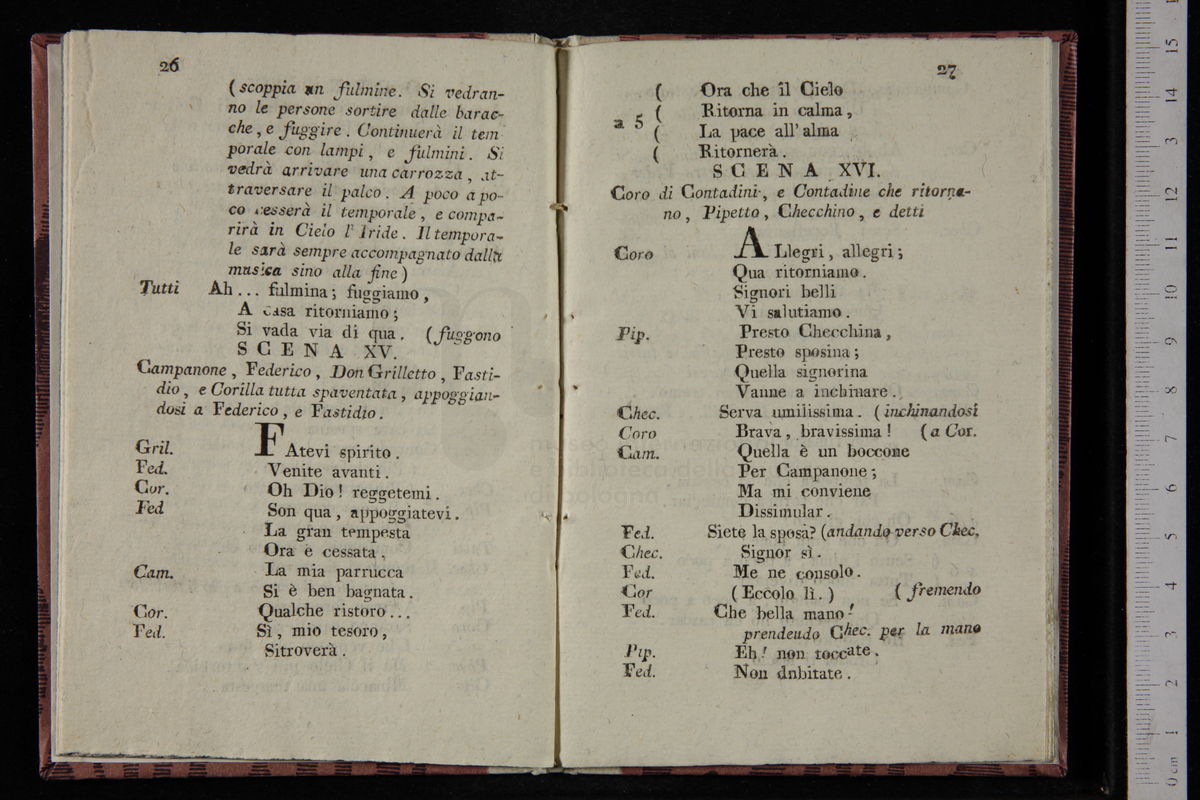 26
(scoppia un fulmine. Si vedran-
no le persone sortire dalle barac-
che, e fuggire. Continuerà il tem
porale con lampi, e fulmini. Si
vedrà arrivare una carrozza, at-
traversare il palco. A poco a po-
co cesserà il temporale, e compa-
rirà in Cielo l'Iride. Il tempora-
le sarà sempre accompagnato dalla
musica sino alla fine)
Tutti Ah... fulmina; fuggiamo,
A casa ritorniamo;
Si vada via di qua. (fuggono
SCENA XV.
Campanone, Federico, Don Grilletto, Fasti-
dio, e Corilla tutta spaventata, appoggian-
dosi a Federico, e Fastidio.
Gril. FAtevi spirito.
Fed. Venite avanti.
Cor. Oh Dio! reggetemi.
Fed Son qua, appoggiatevi.
La gran tempesta
Ora è cessata,
Cam. La mia parrucca
Si è ben bagnata.
Cor. Qualche ristoro...
Fed. Sì, mio tesoro,
Sitroverà.
27
( Ora che il Cielo
a 5 ( Ritorna in calma,
( La pace all' alma
( Ritornerà.
SCENA XVI.
Coro di Contadini, e Contadine che ritorna-
no, Pipetto, Checchino, e detti
Coro ALlegri, allegri;
Qua ritorniamo.
Signori belli
Vi salutiamo.
Pip. Presto Checchina,
Presto sposina;
Quella signorina
Vanne a inchinare.
Chec. Serva umilissima. (inchinandosi
Coro Brava, bravissima! (a Cor.
Cam. Quella è un boccone
Per Campanone;
Ma mi conviene
Dissimular.
Fed. Siete la sposa? (andando verso Chec.
Chec. Signor sì.
Fed. Me ne consolo.
Cor (Eccolo lì.) (fremendo
Fed. Che bella mano!
prendeudo Chec. per la mano
Pip. Eh! non toccate.
Fed. Non dnbitate.
museo internazionale
e biblioteca della
di bologna
0 cm 1 2 3 4 5 6 7 8 9 10 11 12 13 14 15